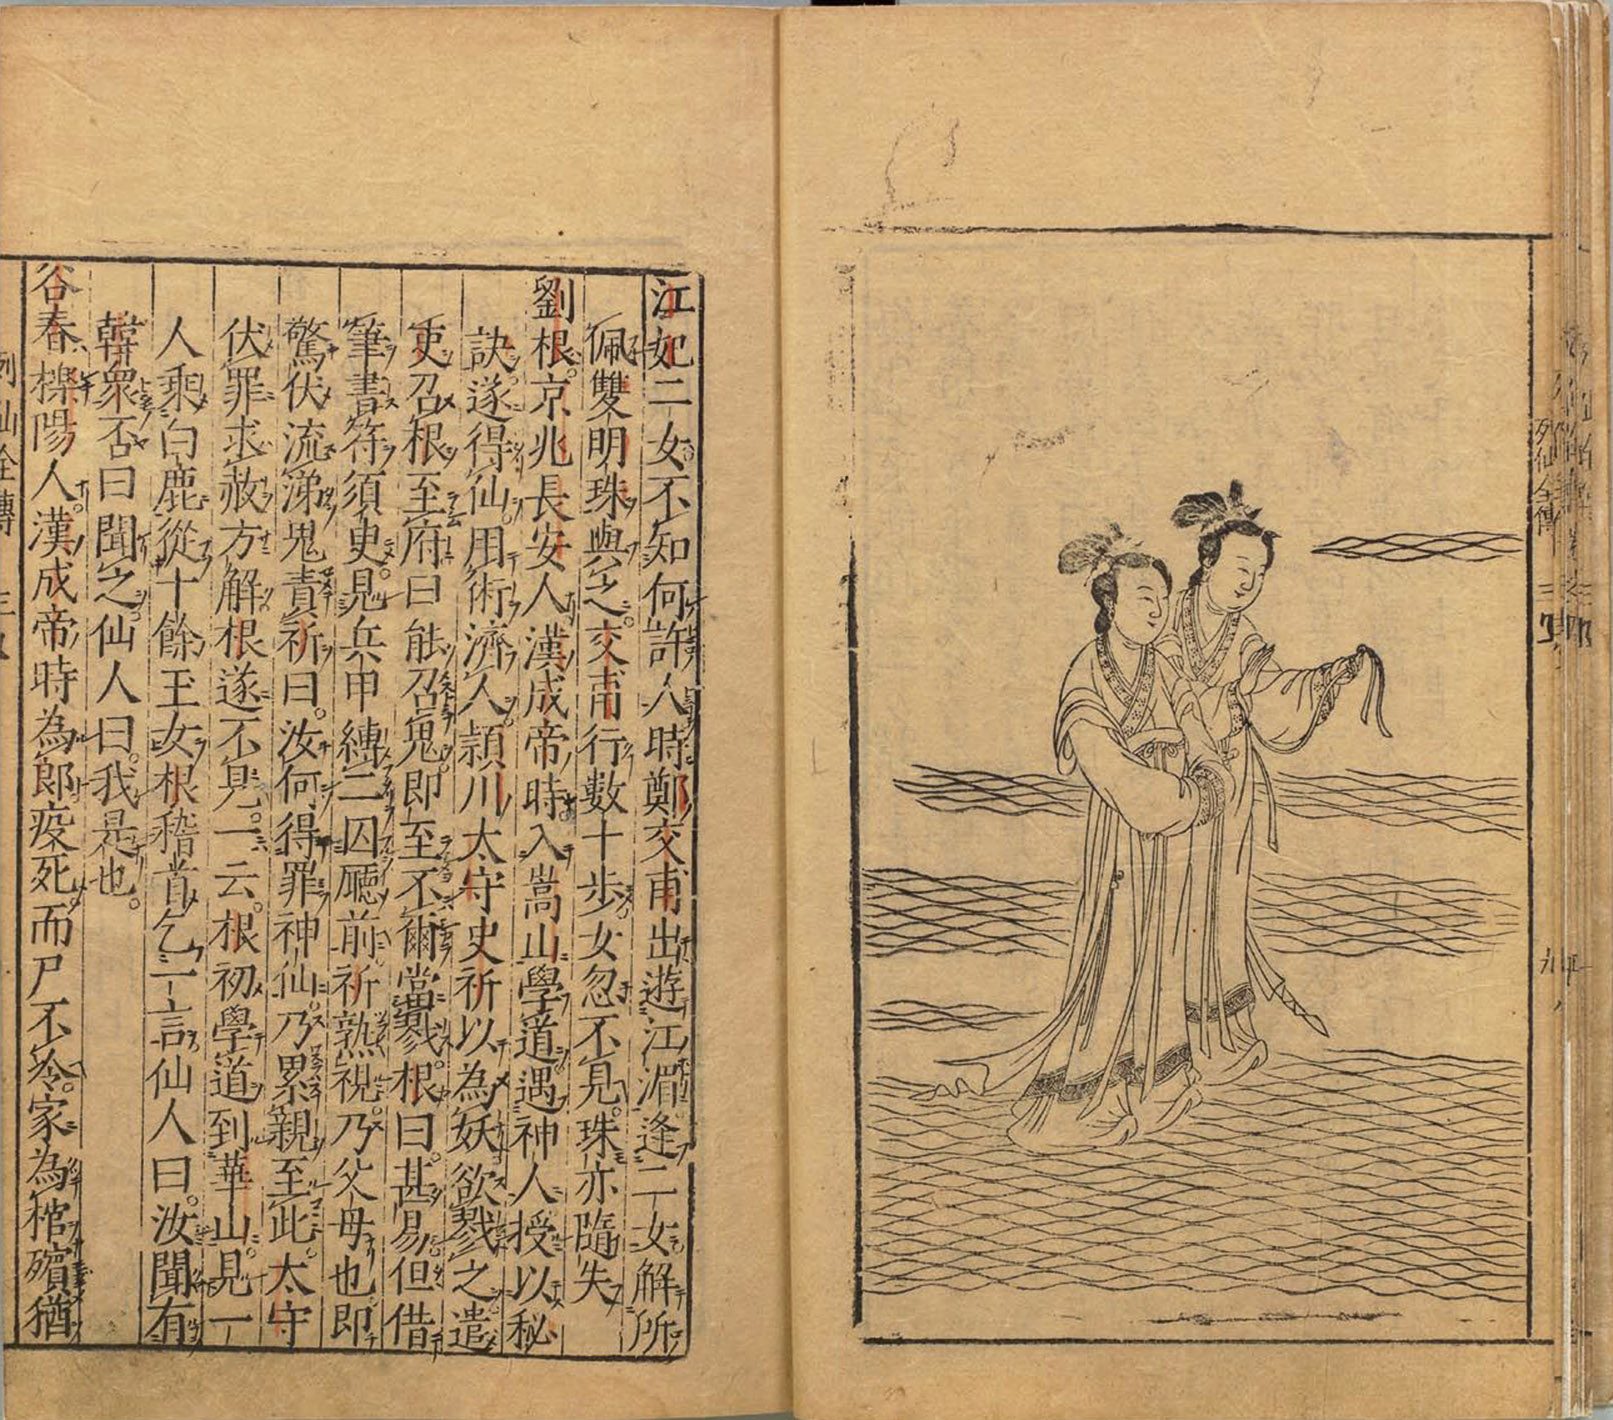 江妃二女不知何許人時鄭交甫出遊江湄逢二女解所
佩雙明珠與之交甫行數十步女忽不見珠亦隨失
劉根京兆長安人漢成帝時入嵩山學道遇神人授以秘
訣遂得仙用術濟人潁川太守史祈以為妖欲戮之遣
吏召根至府曰能召鬼即至不爾當戮根曰甚易但借
筆書符須臾見兵甲縛二囚廳前祈熟視乃父母也即
驚伏流涕鬼責祈曰汝何得罪神仙乃累親至此太守
伏罪求赦方解根遂不見一云根初學道到華山見一
人乘白鹿從十餘玉女根稽首乞一言仙人曰汝聞有
韓衆否曰聞之仙人曰我是也
谷春櫟陽人漢成帝時為郎疫死而尸不冷家為棺殯猶
列仙全傳